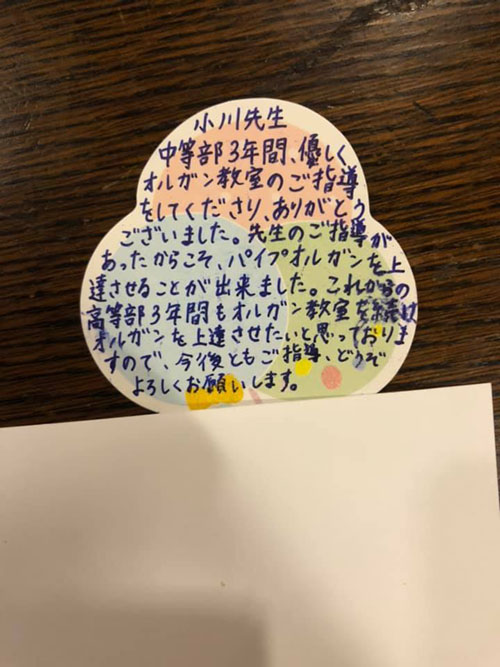 小川先生
中等部3年間、優しく
オルガン教室のご指導
をしてくださり、ありがとう
ございました。先生のご指導が
あったからこそ、パイプオルガンを上
達させることが出来ました。これからの
高等部3年間もオルガン教室を続け
オルガンを上達させたいと思っておりま
すので、今後ともご指導、どうぞ
よろしくお願いします。